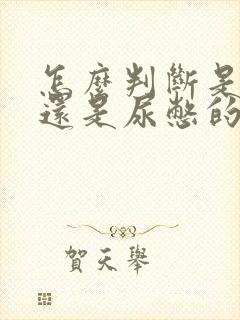 怎麼判斷是
還是尿憋的
賀天舉